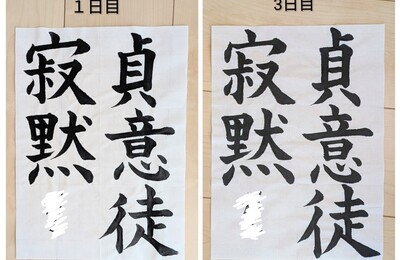 1日目
貞意徒
寂黙
3日目
貞意徒
寂黙